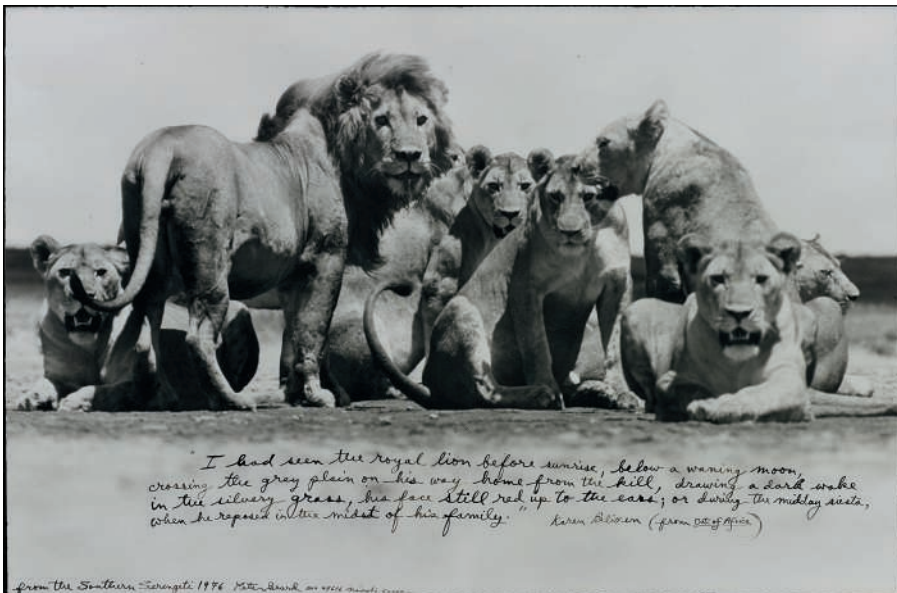 I had seen the royal lion before sunrise, below a waning moon,
crossing the grey plain on his way home from the kill, drawing a dark wake
in the silvery grass, his face still red up to the ears; or during the midday siesta,
when he reposed in the midst of his family." Karen Blixen (from Out of Africa)
from the Southern Serengeti 1976 Peter Beard